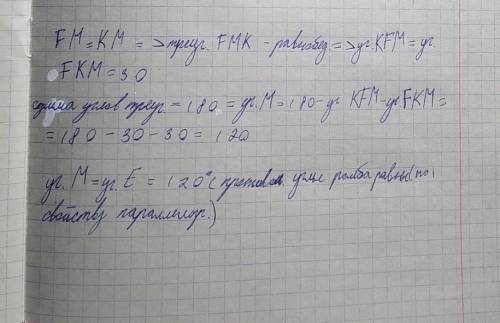 FM = KM => треуг. FMK - равнобед => уг. KFM = уг.
FKM = 30
сумма углов треуг = 180 = уг. M = 180 - уг KFM - уг FKM =
= 180 - 30 - 30 = 120
уг. M = уг. E = 120° (противоп. углы ромба равны (по
свойству параллелогр.)